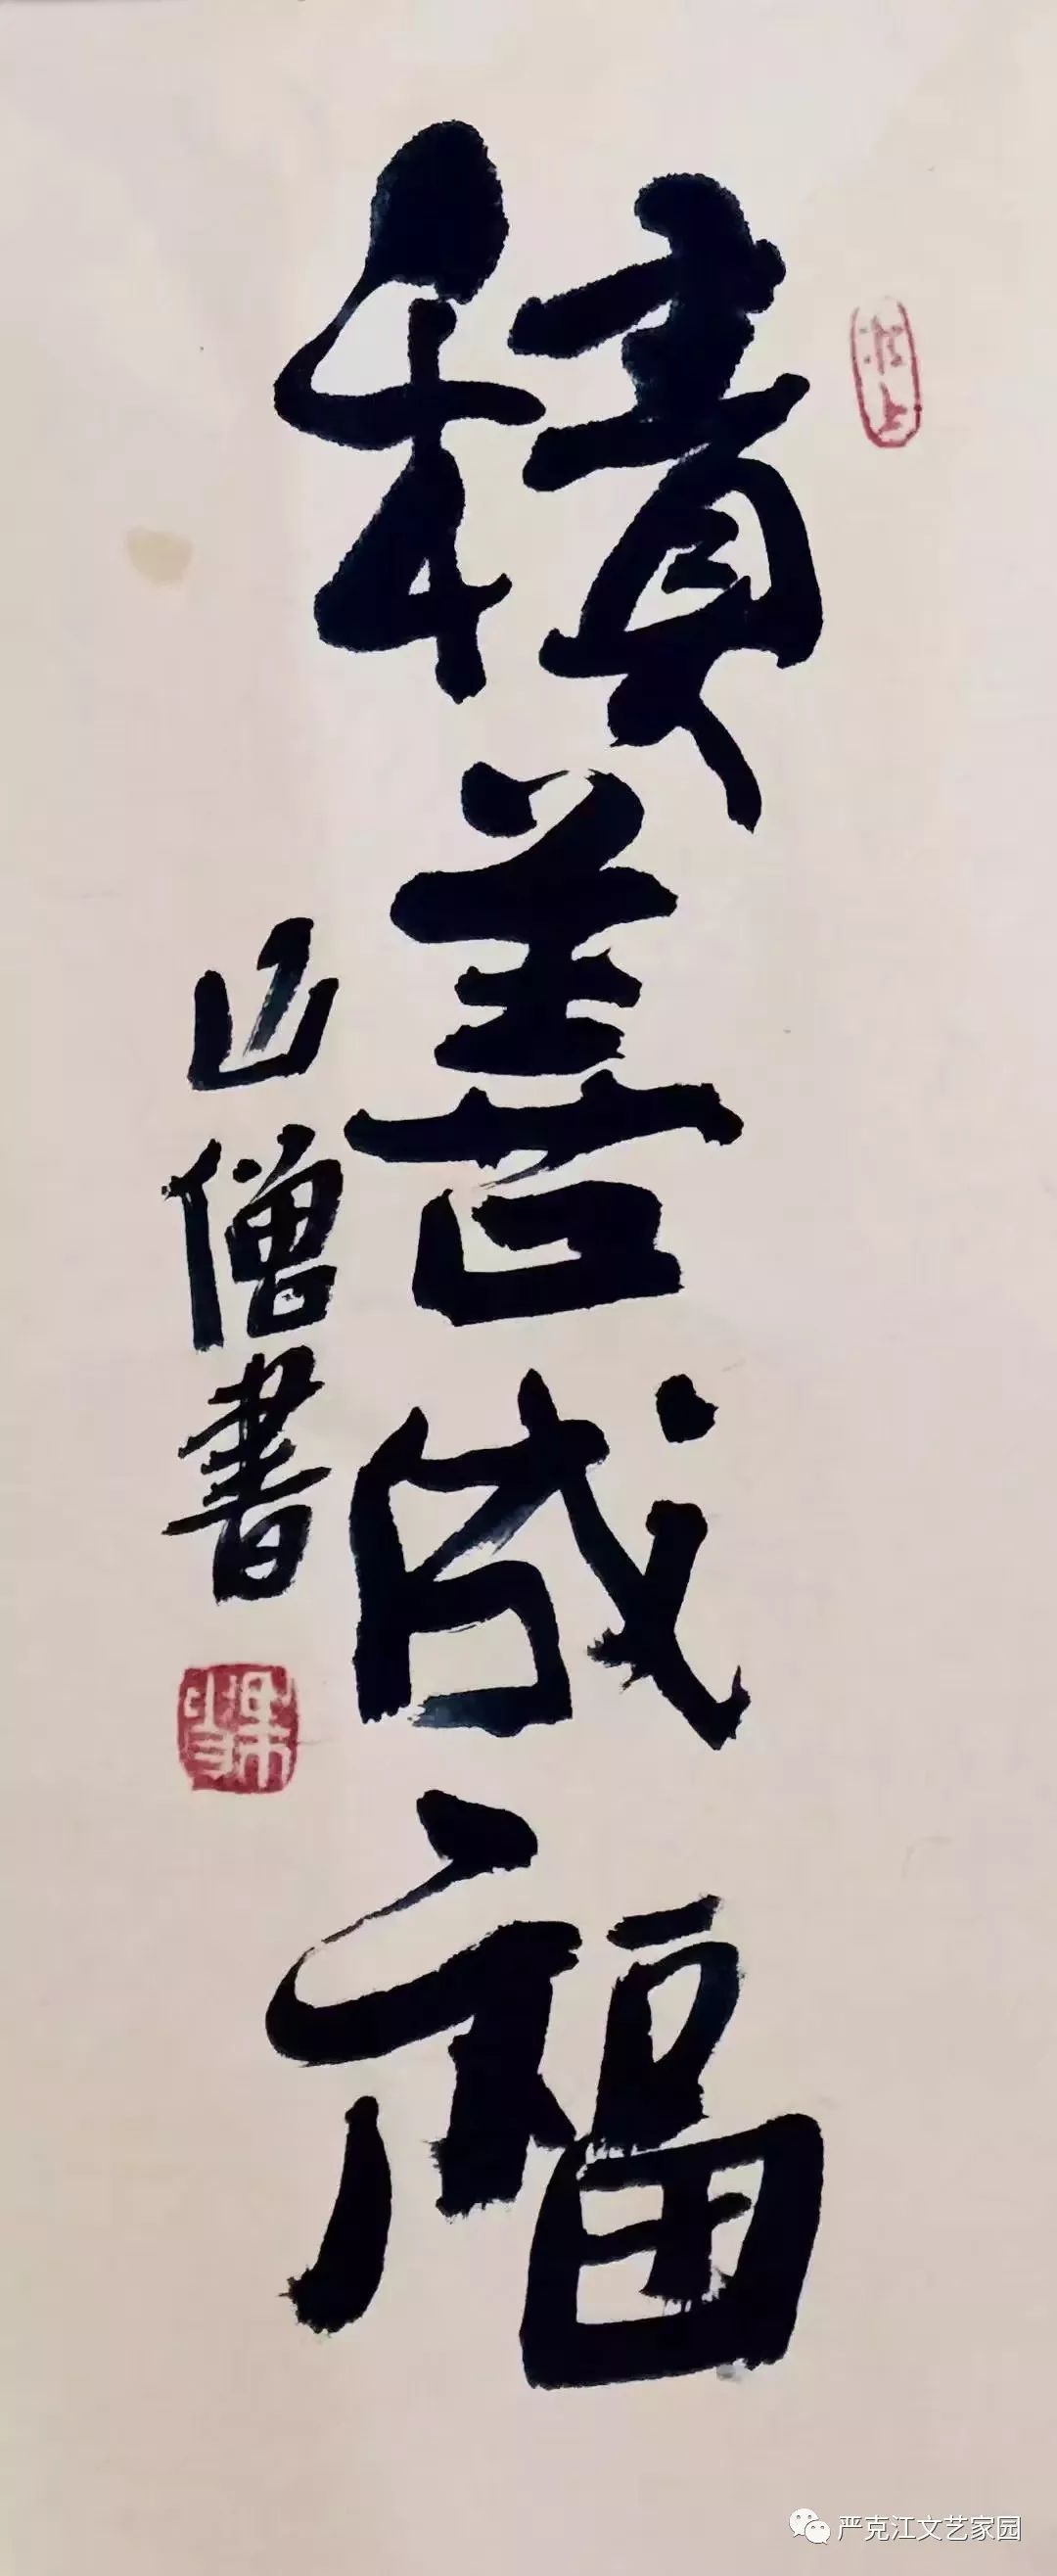 積善成福
山僧書
严克江文艺家园